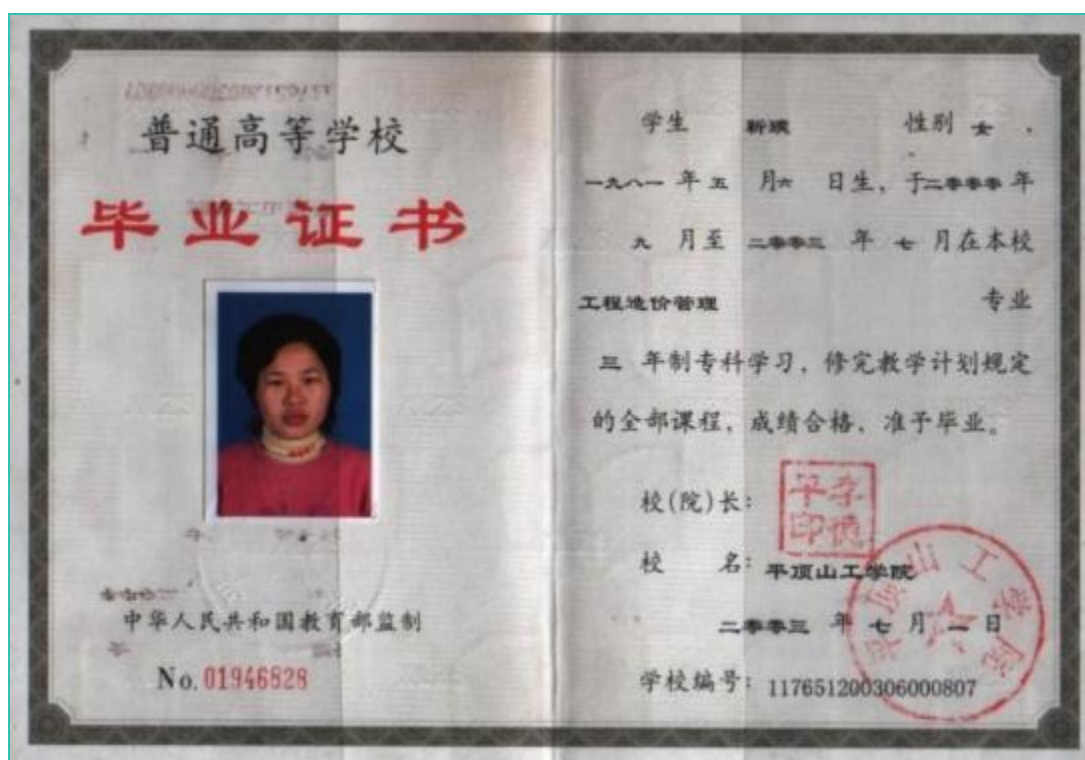 普通高等学校
毕业证书
中华人民共和国教育部监制
No. 01946828
学生 性别 女 ,
一九八一 年 五 月 六 日生, 于二零零零 年
九 月至 二零零三 年 七 月在本校
工程造价管理 专业
三 年制专科学习, 修完教学计划规定
的全部课程, 成绩合格, 准予毕业。
校(院)长:
李德平印
校 名: 平顶山工学院
二零零三 年 七 月 一 日
学校编号: 117651200306000807
平顶山工学院